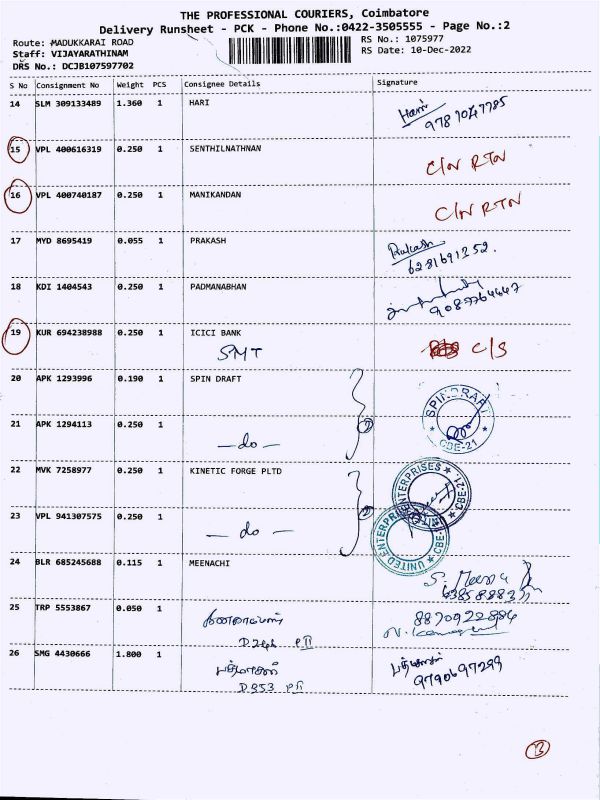 THE PROFESSIONAL COURIERS, Coimbatore
Delivery Runsheet - PCK - Phone No.:0422-3505555 - Page No.:2
Route: MADUKKARAI ROAD
RS No.: 1075977
Staff: VIJAYARATHINAM
RS Date: 10-Dec-2022
DRS No.: DCJB107597702
S No Consignment No Weight PCS Consignee Details Signature
14 SLM 309133489 1.360 1 HARI Hari
9787047785
15 VPL 400616319 0.250 1 SENTHILNATHNAN C/N RTN
16 VPL 400740187 0.250 1 MANIKANDAN C/N RTN
17 MYD 8695419 0.055 1 PRAKASH Prakash
6281691252.
18 KDI 1404543 0.250 1 PADMANABHAN
9087764447
19 KUR 694238988 0.250 1 ICICI BANK
SMT C/S
20 APK 1293996 0.190 1 SPIN DRAFT SPINDRAFT
CBE-21
21 APK 1294113 0.250 1
— do —
22 MVK 7258977 0.250 1 KINETIC FORGE PLTD UNITED ENTERPRISES CBE-21
23 VPL 941307575 0.250 1 UNITED ENTERPRISES CBE-21
— do —
24 BLR 685245688 0.115 1 MEENACHI S. Meena
25 TRP 5553867 0.050 1 8870922884
D246 PII
26 SMG 4430666 1.800 1 பத்மாசனி பத்மாசனி
D353 PII 9790697299
13